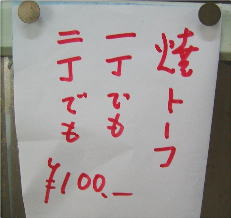 焼トーフ
一丁でも
二丁でも
¥100.-